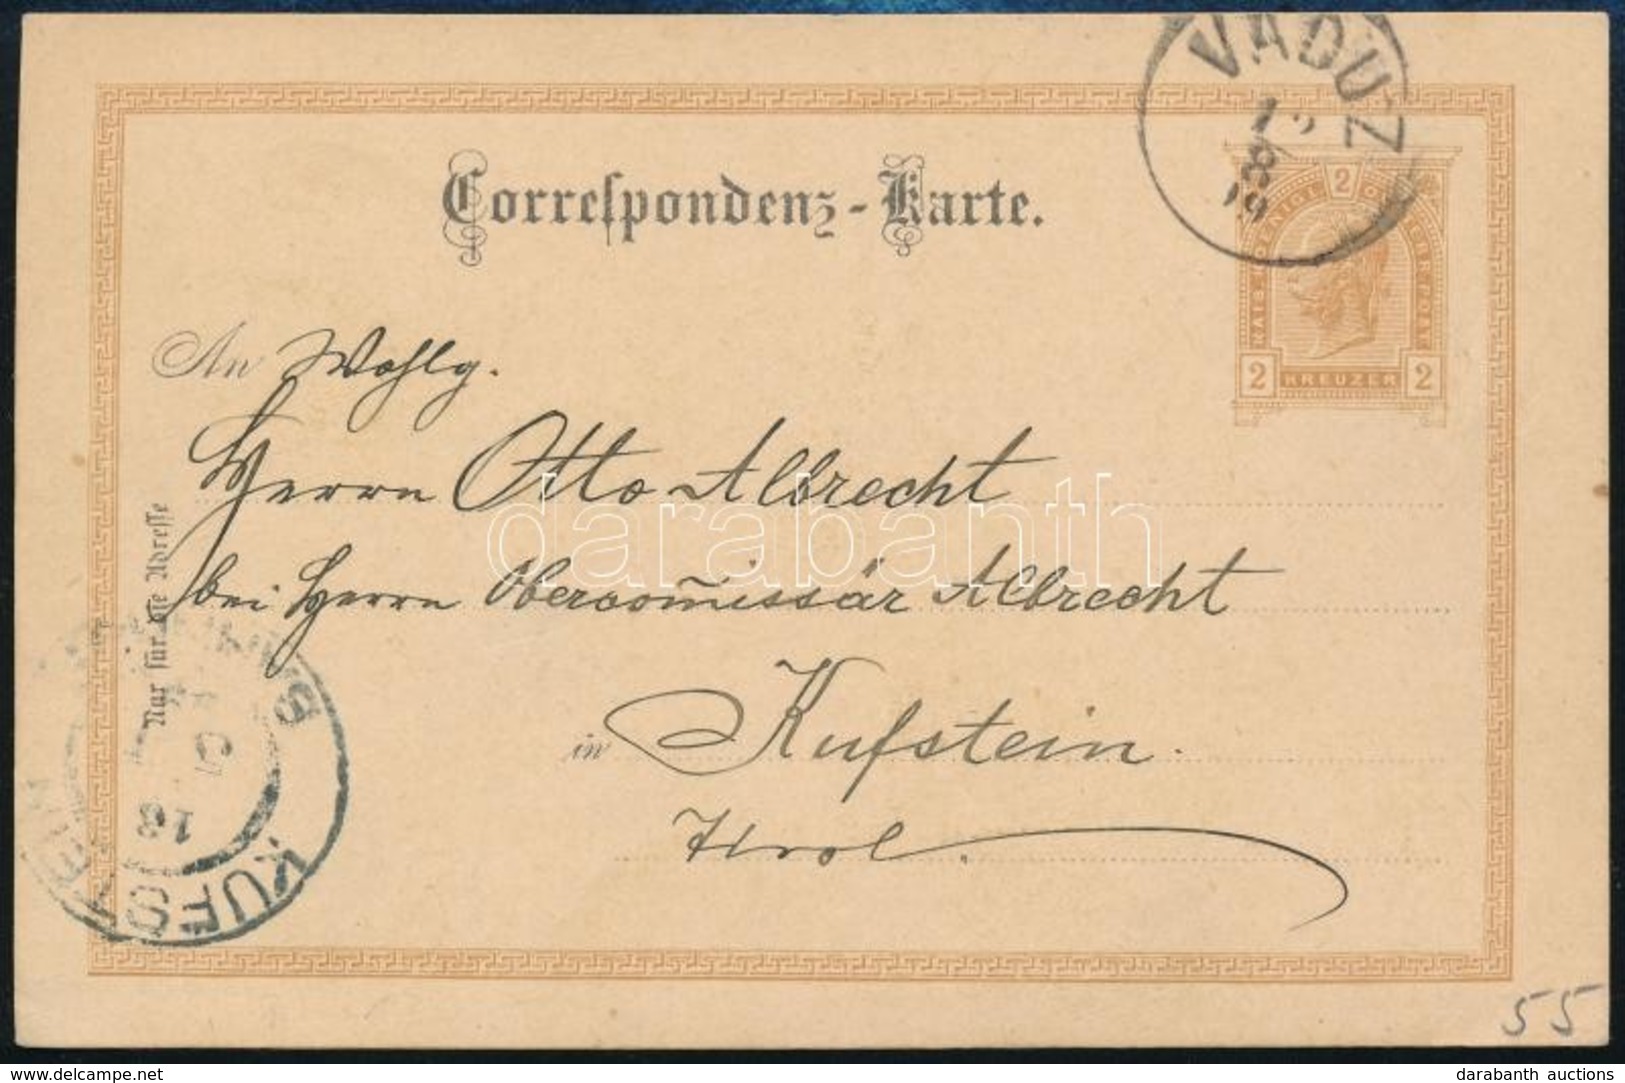 VADUZ
Correspondenz-Karte.
2
KREUZER
2 2
An Wohlg.
Herrn Otto Albrecht
bei Herrn Obercom̄issär Albrecht
in Kufstein.
Tirol.
Nur für die Adresse
KUFSTEIN
18
darabanth
55
delcampe.net
darabanth auctions